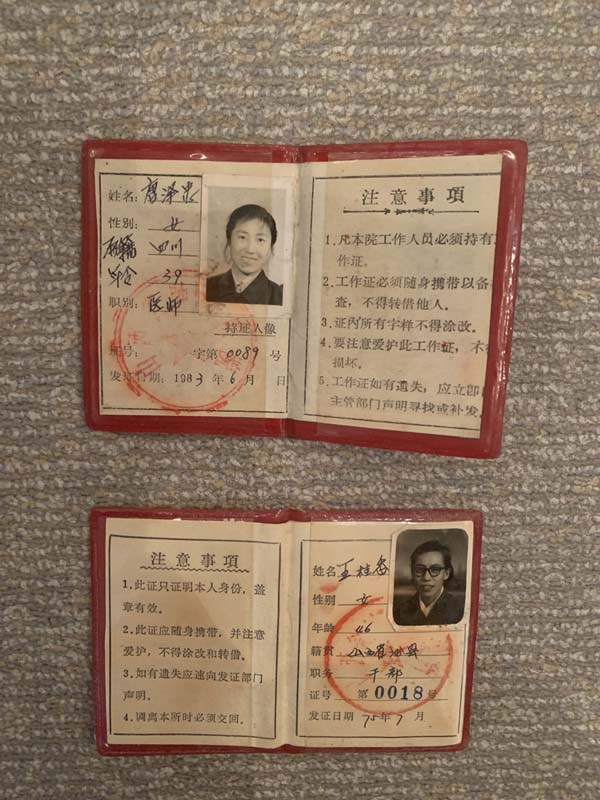 姓名: 廖泽忠
性别: 女
籍 四川
年令 39
职别: 医师
持证人像
证号: 字第0089号
发证日期: 1983年6月 日
注意事項
1. 凡本院工作人员必须持有工
作证。
2. 工作证必须随身携带以备
查,不得转借他人。
3. 证内所有字样不得涂改。
4. 要注意爱护此工作证,不得
损坏。
5. 工作证如有遗失,应立即
主管部门声明寻找或补发。
注意事項
1. 此证只证明本人身份,盖
章有效。
2. 此证应随身携带,并注意
爱护,不得涂改和转借。
3. 如有遗失应速向发证部门
声明。
4. 调离本所时必须交回。
姓名 王桂
性别 女
年龄 46
籍贯 山西 县
职务 干部
证号 第0018号
发证日期 75年7月